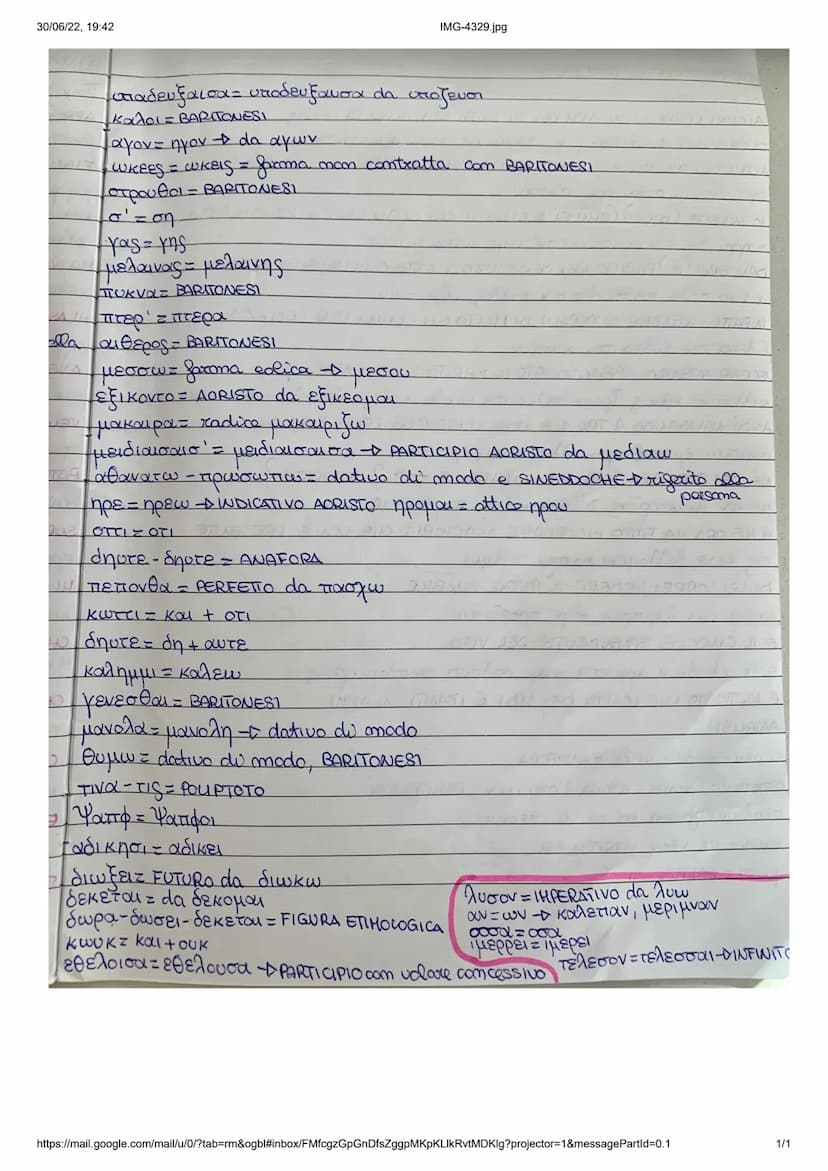 30/06/22, 19:42 IMG-4329.jpg
υπαδευξαισα= υποδευξαυσα da υποζευσι
καλοι = BARITONESI
αγον= ηγον → da αγων
ωκεες = ωκεις = forma non contratta con BARITONESI
στρουθοι = BARITONESI
σ' = ση
γας= γης
μελαινας= μελαινης
πυκνα= BARITONESI
πτερ' = πτερα
alla αιθερος= BARITONESI
μεσσω= forma eolica → μεσου
εξικοντο= AORISTO da εξικεομαι
μακαιρα= radice μακαιριζω
μειδιαισαισ' = μειδιαισαισα → PARTICIPIO AORISTO da μεδιαω
αθανατω - προσωπω= dativo di modo e SINEDDOCHE → riferito alla
persona
ηρε= ηρεω → INDICATIVO AORISTO ηρομαι = attico ηρου
οττι = οτι
dηυτε - δηυτε = ANAFORA
πεπονθα = PERFETTO da πασχω
κωττι= και + οτι
δηυτε= δη + αυτε
καλημμι = καλεω
γενεσθαι= BARITONESI
μαινολα= μαινολη → dativo di modo
θυμω= dativo di modo, BARITONESI
τινα - τις= POLIPTOTO
Ψαπφ = Ψαπφοι
αδικησι = αδικει
διωξει= FUTURO da διωκω
δεκεται = da δεκομαι
δωρα-δωσει-δεκεται = FIGURA ETIMOLOGICA
κωυκ= και + ουκ
εθελοισα= εθελουσα → PARTICIPIO con valore concessivo
λυσον = IMPERATIVO da λυω
αν= ων → καλεπαν, μεριμναν
οσσα = οσα
ιμερρει = ιμερει
τελεσον = τελεσσαι → INFINITO
https://mail.google.com/mail/u/0/?tab=rm&ogbl#inbox/FMfcgzGpGnDfsZggpMKpKLlkRvtMDKlg?projector=1&messagePartId=0.1 1/1